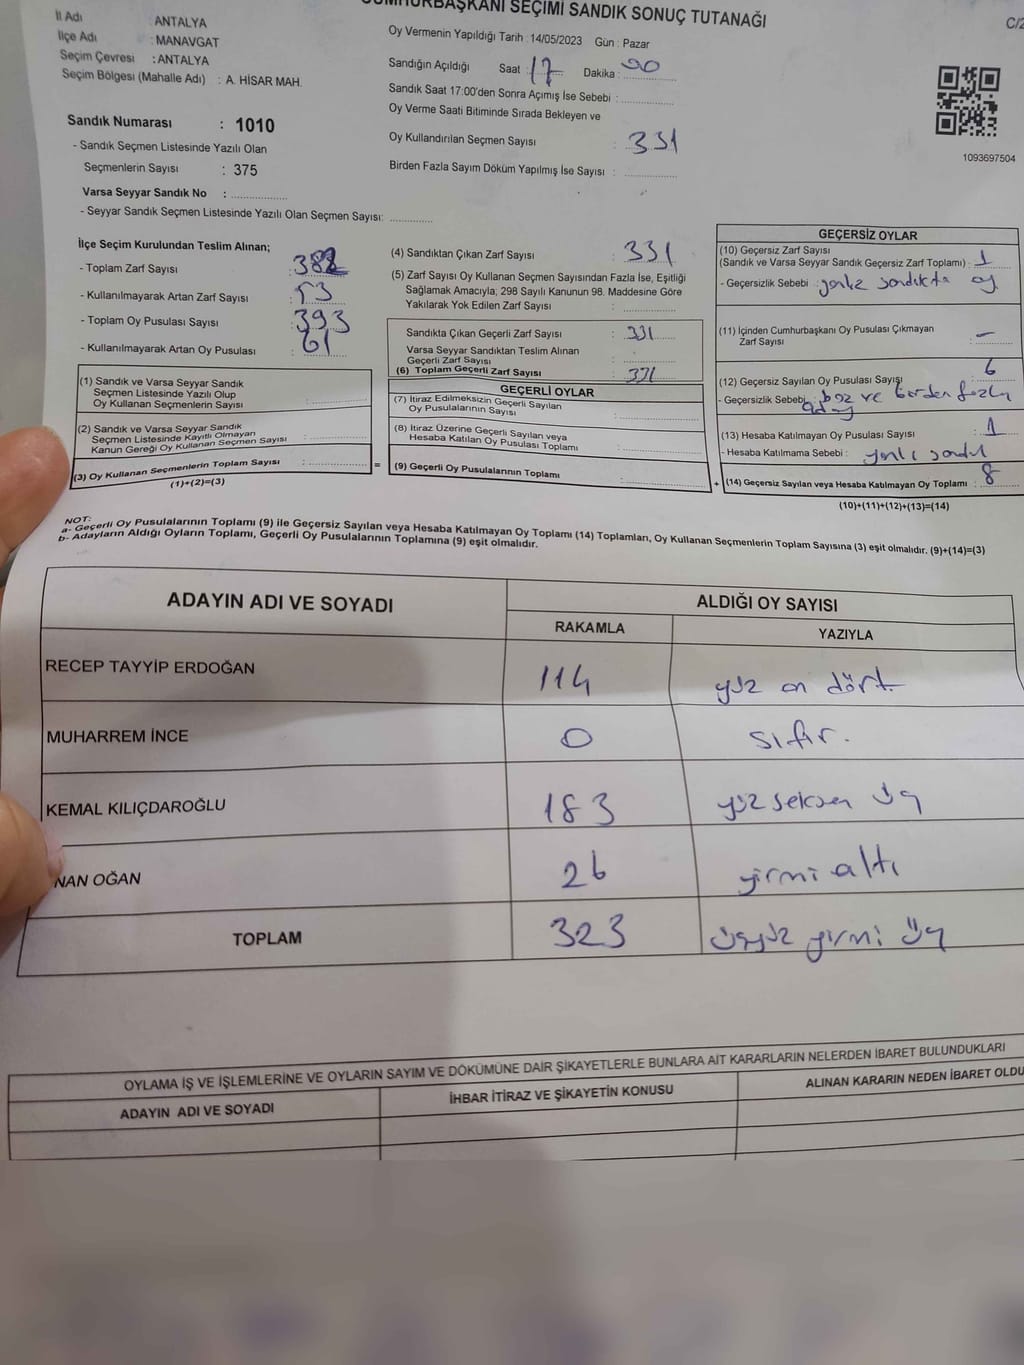 CUMHURBAŞKANI SEÇİMİ SANDIK SONUÇ TUTANAĞI
C/2
İl Adı ANTALYA
İlçe Adı : MANAVGAT
Seçim Çevresi : ANTALYA
Seçim Bölgesi (Mahalle Adı) : A. HİSAR MAH.
Sandık Numarası : 1010
- Sandık Seçmen Listesinde Yazılı Olan
Seçmenlerin Sayısı : 375
Varsa Seyyar Sandık No :
- Seyyar Sandık Seçmen Listesinde Yazılı Olan Seçmen Sayısı:
Oy Vermenin Yapıldığı Tarih : 14/05/2023 Gün : Pazar
Sandığın Açıldığı Saat : 17 Dakika :
Sandık Saat 17:00'den Sonra Açımış İse Sebebi :
Oy Verme Saati Bitiminde Sırada Bekleyen ve
Oy Kullandırılan Seçmen Sayısı : 331
Birden Fazla Sayım Döküm Yapılmış İse Sayısı :
1093697504
İlçe Seçim Kurulundan Teslim Alınan;
- Toplam Zarf Sayısı : 382
- Kullanılmayarak Artan Zarf Sayısı : 53
- Toplam Oy Pusulası Sayısı : 393
- Kullanılmayarak Artan Oy Pusulası : 61
(1) Sandık ve Varsa Seyyar Sandık
Seçmen Listesinde Yazılı Olup
Oy Kullanan Seçmenlerin Sayısı :
(2) Sandık ve Varsa Seyyar Sandık
Seçmen Listesinde Kayıtlı Olmayan
Kanun Gereği Oy Kullanan Seçmen Sayısı :
(3) Oy Kullanan Seçmenlerin Toplam Sayısı :
(1)+(2)=(3)
=
(4) Sandıktan Çıkan Zarf Sayısı : 331
(5) Zarf Sayısı Oy Kullanan Seçmen Sayısından Fazla İse, Eşitliği
Sağlamak Amacıyla; 298 Sayılı Kanunun 98. Maddesine Göre
Yakılarak Yok Edilen Zarf Sayısı :
Sandıkta Çıkan Geçerli Zarf Sayısı : 331
Varsa Seyyar Sandıktan Teslim Alınan
Geçerli Zarf Sayısı :
(6) Toplam Geçerli Zarf Sayısı : 331
GEÇERLİ OYLAR
(7) İtiraz Edilmeksizin Geçerli Sayılan
Oy Pusulalarının Sayısı :
(8) İtiraz Üzerine Geçerli Sayılan veya
Hesaba Katılan Oy Pusulası Toplamı :
(9) Geçerli Oy Pusulalarının Toplamı :
+
GEÇERSİZ OYLAR
(10) Geçersiz Zarf Sayısı
(Sandık ve Varsa Seyyar Sandık Geçersiz Zarf Toplamı) : 1
- Geçersizlik Sebebi : oy
(11) İçinden Cumhurbaşkanı Oy Pusulası Çıkmayan
Zarf Sayısı : -
(12) Geçersiz Sayılan Oy Pusulası Sayısı : 6
- Geçersizlik Sebebi : boz ve birden fazla
aday
(13) Hesaba Katılmayan Oy Pusulası Sayısı : 1
- Hesaba Katılmama Sebebi :
(14) Geçersiz Sayılan veya Hesaba Katılmayan Oy Toplamı : 8
(10)+(11)+(12)+(13)=(14)
NOT:
a- Geçerli Oy Pusulalarının Toplamı (9) ile Geçersiz Sayılan veya Hesaba Katılmayan Oy Toplamı (14) Toplamları, Oy Kullanan Seçmenlerin Toplam Sayısına (3) eşit olmalıdır. (9)+(14)=(3)
b- Adayların Aldığı Oyların Toplamı, Geçerli Oy Pusulalarının Toplamına (9) eşit olmalıdır.
ADAYIN ADI VE SOYADI ALDIĞI OY SAYISI
RAKAMLA YAZIYLA
RECEP TAYYİP ERDOĞAN 114 yüz on dört
MUHARREM İNCE 0 sıfır.
KEMAL KILIÇDAROĞLU 183 yüz seksen üç
NAN OĞAN 26 yirmi altı
TOPLAM 323 üçyüz yirmi üç
OYLAMA İŞ VE İŞLEMLERİNE VE OYLARIN SAYIM VE DÖKÜMÜNE DAİR ŞİKAYETLERLE BUNLARA AİT KARARLARIN NELERDEN İBARET BULUNDUKLARI
ADAYIN ADI VE SOYADI İHBAR İTİRAZ VE ŞİKAYETİN KONUSU ALINAN KARARIN NEDEN İBARET OLDU